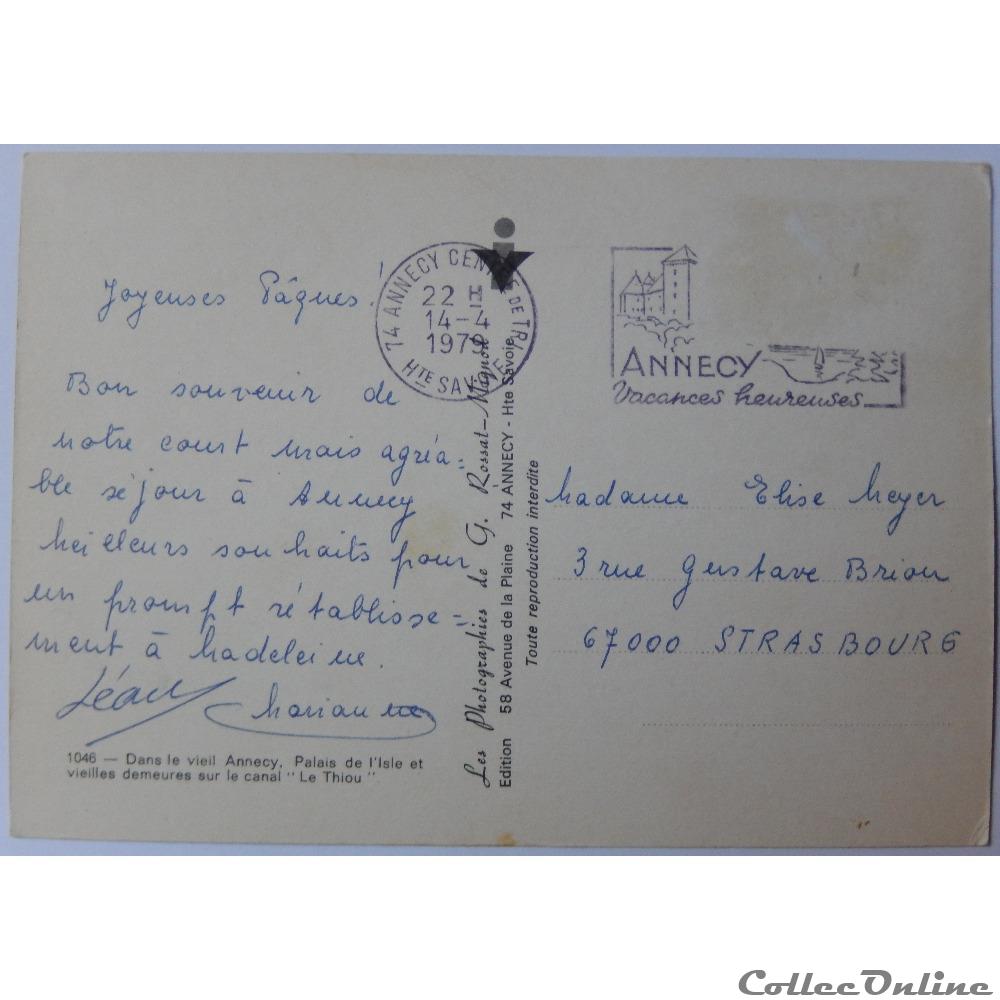 Joyeuses Pâques!
Bon souvenir de
notre court mais agréa=
ble séjour à Annecy
Meilleurs souhaits pour
un prompt rétablisse=
ment à Madeleine.
Léon Marianne
1046 — Dans le vieil Annecy. Palais de l'Isle et
vieilles demeures sur le canal " Le Thiou "
74 ANNECY CENTRE DE TRI
22 H
14-4
1979
HTE SAVOIE
Les Photographies de G. Rossat-Mignon
Edition 58 Avenue de la Plaine 74 ANNECY - Hte Savoie
Toute reproduction interdite
ANNECY
Vacances heureuses
Madame Elise Meyer
3 rue Gustave Brion
67000 STRASBOURG
CollecOnline